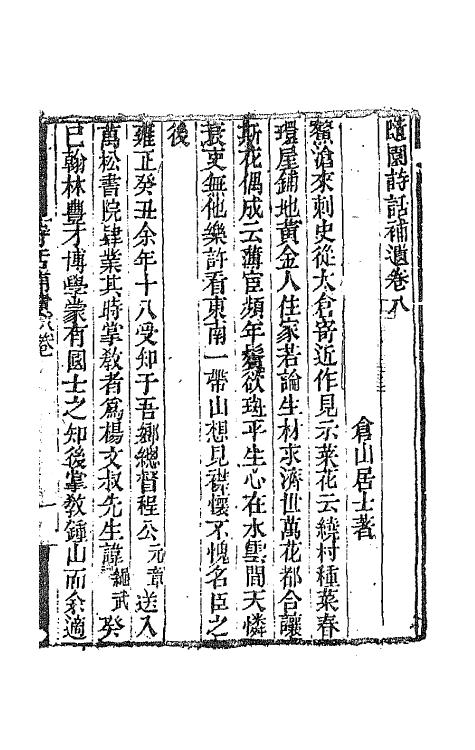 隨園詩話補遺卷八
倉山居士著
鰲滄來刺史從太倉寄近作見示菜花云繞村種菜春
環屋鋪地黃金人住家若論生材求濟世萬花都合讓
斯花偶成云薄宦頻年鬢欲斑平生心在水雲間天憐
衰吏無他樂許看東南一帶山想見襟懷不愧名臣之
後
雍正癸丑余年十八受知于吾鄉總督程公元章送入
萬松書院肄業其時掌教者爲楊文叔先生諱繩武癸
巳翰林豐才博學蒙有國士之知後掌教鍾山而余適
詩話補遺卷八